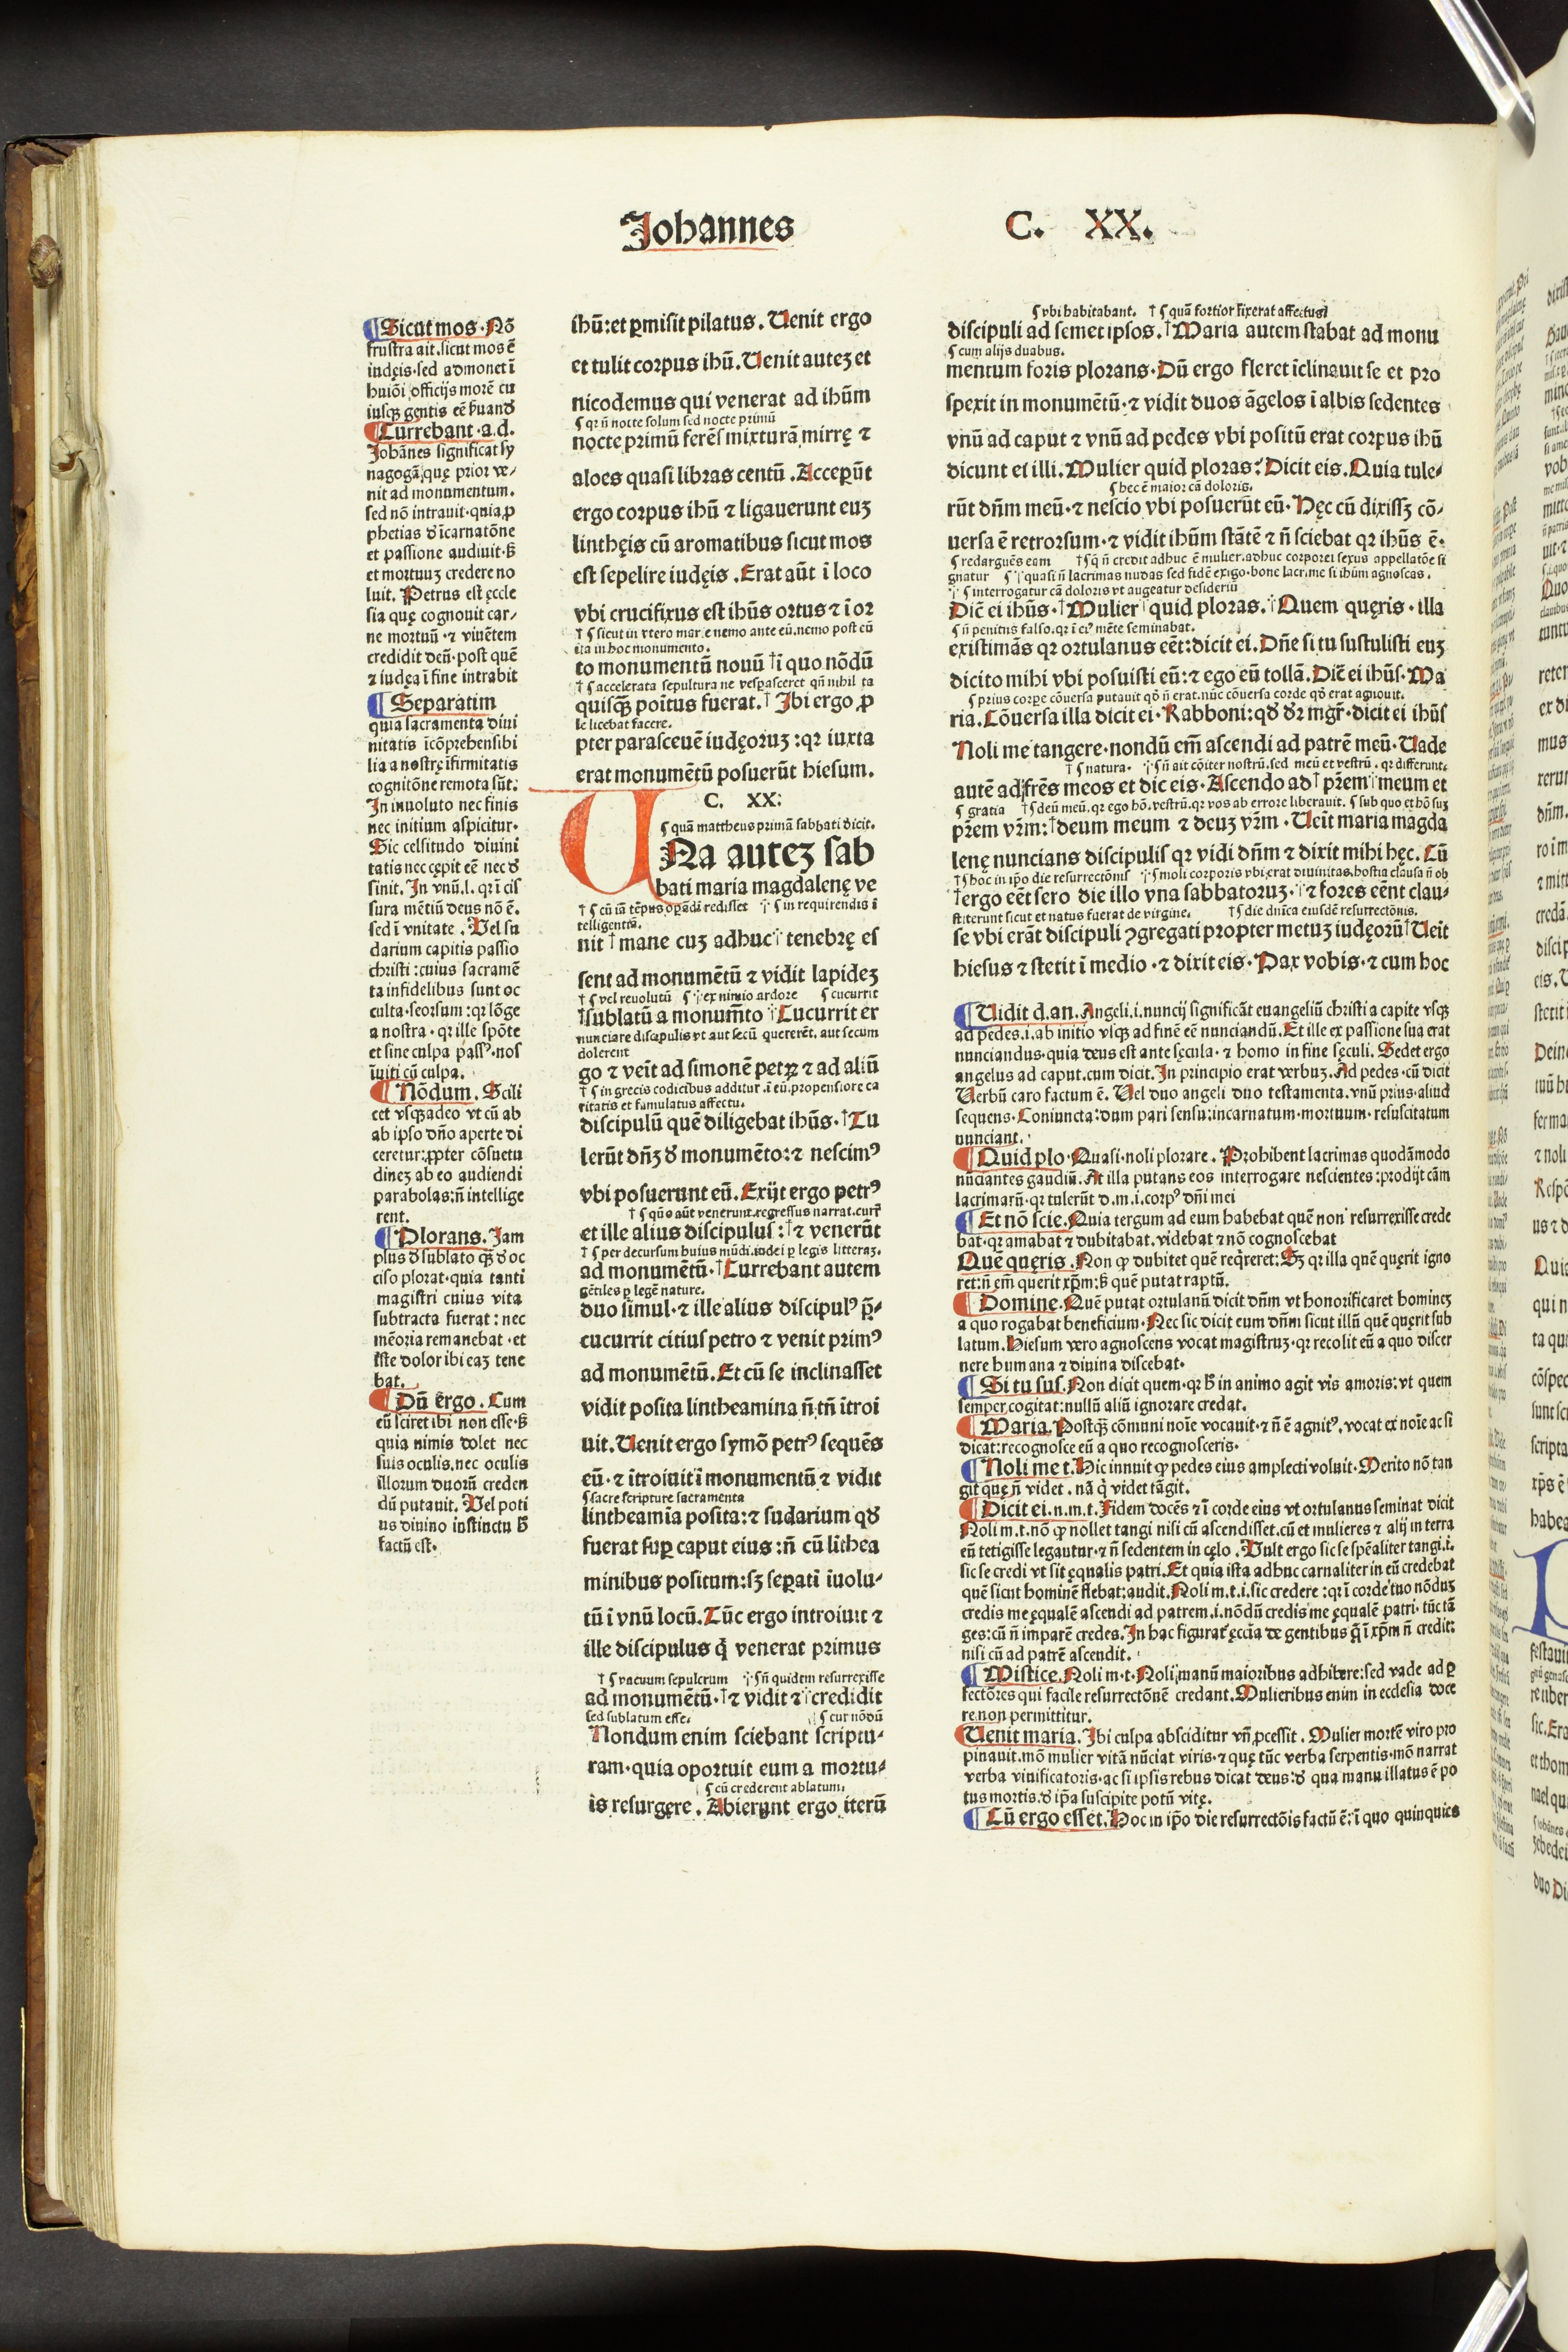 Johannes
C. XX.
Sicut mos. Nō
frustra ait. sicut mos ē
iudęis. sed admonet ī
huiōi officijs morē cu
iusqꝫ gentis eē ẜuand
Currebant. a. d.
Johānes significat sy
nagogā, quę prior ve-
nit ad monumentum.
sed nō intrauit. quia ꝓ
phetias ð īcarnatōne
et passione audiuit. ẜ
et mortuuꝫ credere no
luit. Petrus est eccle
sia quę cognouit car-
ne mortuū. ⁊ viuētem
credidit deū. post quē
⁊ iudęa ī fine intrabit
Separatim
quia sacramenta diui
nitatis īcōprehensibi
lia a nostrę īfirmitatis
cognitōne remota sūt.
In inuoluto nec finis
nec initium aspicitur.
Sic celsitudo diuini
tatis nec cępit eē nec ð
sinit. In vnū. l. qꝛ ī cis
sura mētiū deus nō ē.
sed ī vnitate. Vel su
darium capitis passio
christi: cuius sacramē
ta infidelibus sunt oc
culta. seorsum: qꝛ lōge
a nostra. qꝛ ille spōte
et sine culpa passꝰ. nos
īuiti cū culpa.
Nōdum. Scili
cet vsqꝫ adeo vt cū ab
ab ipso dño aperte di
ceretur: ꝓpter cōsuetu
dineꝫ ab eo audiendi
parabolas: ñ intellige
rent.
Plorans. Jam
plus ð sublato qꝫ ð oc
ciso plorat. quia tanti
magistri cuius vita
subtracta fuerat: nec
mēoria remanebat. et
iste dolor ibi eaꝫ tene
bat.
Dū ergo. Cum
eū sciret ibi non esse. ẜ
quia nimis dolet nec
suis oculis. nec oculis
illorum duorū creden
dū putauit. Vel poti
us diuino instinctu ħ
factū est.
ihū: et ꝑmisit pilatus. Uenit ergo
et tulit corpus ihū. Uenit auteꝫ et
nicodemus qui venerat ad ihūm
ꞔ qꝛ ñ nocte solum sed nocte primū
nocte primū ferēs mixturā mirrę ⁊
aloes quasi libras centū. Acceperūt
ergo corpus ihū ⁊ ligauerunt euꝫ
linthęis cū aromatibus sicut mos
est sepelire iudęis. Erat aūt ī loco
vbi crucifixus est ihūs ortus ⁊ ī or
† ꞔ sicut in vtero marie nemo ante eū. nemo post eū
ita in hoc monumento.
to monumentū nouū † ī quo nōdū
† ꞔ accelerata sepultura ne vesperasceret qñ nihil ta
quisqꝫ poītus fuerat. † Ibi ergo ꝓ
le licebat facere.
pter parasceuē iudęoruꝫ: qꝛ iuxta
erat monumētū posuerūt hiesum.
C. XX:
ꞔ quā mattheus primā sabbati dicit.
UNa auteꝫ sab
bati maria magdalenę ve
† ꞔ cū iā tēpus operādi redisset ꞔ in requirendis ī
telligentiā.
nit † mane cuꝫ adhuc tenebrę es
sent ad monumētū ⁊ vidit lapideꝫ
† ꞔ vel reuolutū ꞔ ex nimio ardore ꞔ cucurrit
†sublatū a monumēto Cucurrit er
nunciare discipulis vt aut secū quererēt. aut secum
dolerent
go ⁊ veīt ad simonē petrꝫ ⁊ ad aliū
† ꞔ in grecis codicibus additur. i eū. propensiore ca
ritatis et famulatus affectu.
discipulū quē diligebat ihūs. † Tu
lerūt dñꝫ ð monumēto: ⁊ nescimꝰ
vbi posuerunt eū. Exijt ergo petrꝰ
† ꞔ qūo aūt venerunt. regressus narrat. currē
et ille alius discipulus: † ⁊ venerūt
† ꞔ per decursum huius mūdi. iudei ꝑ legis litteraꝫ.
ad monumētū. † Currebant autem
gētiles ꝑ legē nature.
duo simul. ⁊ ille alius discipulꝰ p̄-
cucurrit citius petro ⁊ venit primꝰ
ad monumētū. Et cū se inclinasset
vidit posita lintheamina ñ tñ ītroi
uit. Uenit ergo symō petrꝰ sequēs
eū. ⁊ ītroiuit ī monumentū ⁊ vidit
ꞔ sacre scripture sacramenta
lintheamīa posita: ⁊ sudarium qð
fuerat suꝑ caput eius: ñ cū līthea
minibus positum: sꝫ seꝑatī īuolu-
tū ī vnū locū. Tūc ergo introiuit ⁊
ille discipulus q̇ venerat primus
† ꞔ vacuum sepulcrum ꞔ ñ quidem resurrexisse
ad monumētū. † ⁊ vidit ⁊ credidit
sed sublatum esse. ꞔ cur nōdū
Nondum enim sciebant scriptu-
ram. quia oportuit eum a mortu-
ꞔ cū crederent ablatum.
is resurgere. Abierunt ergo iterū
ꞔ vbi habitabant. † ꞔ quā fortior fixerat affectus
discipuli ad semet ipsos. † Maria autem stabat ad monu
ꞔ cum alijs duabus.
mentum foris plorans. Dū ergo fleret īclinauit se et pro
spexit in monumētū. ⁊ vidit duos āgelos ī albis sedentes
vnū ad caput ⁊ vnū ad pedes vbi positū erat corpus ihū
dicunt ei illi. Mulier quid ploras? Dicit eis. Quia tule-
ꞔ hec ē maior cā doloris.
rūt dñm meū. ⁊ nescio vbi posuerūt eū. Hęc cū dixissꝫ cō-
uersa ē retrorsum. ⁊ vidit ihūm stātē ⁊ ñ sciebat qꝛ ihūs ē.
ꞔ redarguēs eam † ꞔ q̇ ñ credit adhuc ē mulier. adhuc corporei sexus appellatōe si
gnatur ꞔ quasi ñ lacrimas nudas sed fidē exigo. bone lacrime si ihūm agnoscas.
ꞔ interrogatur cā doloris vt augeatur desideriū
Dicē ei ihūs. † Mulier quid ploras. Quem quęris. illa
ꞔ ñ penitus falso. qꝛ ī eiꝰ mēte seminabat.
existimās qꝛ ortulanus eēt: dicit ei. Dñe si tu sustulisti euꝫ
dicito mihi vbi posuisti eū: ⁊ ego eū tollā. Dicē ei ihūs. Ma
ꞔ prius corpe cōuersa putauit qð ñ erat. nūc cōuersa corde qð erat agnouit.
ria. Cōuersa illa dicit ei. Rabboni: qð ðꝛ mgr̄. dicit ei ihūs
Noli me tangere. nondū em̄ ascendi ad patrē meū. Uade
† ꞔ natura. ꞔ ñ ait cōiter nostrū. sed meū et vestrū. qꝛ differunt.
autē ad frēs meos et dic eis. Ascendo ad † prēm meum et
ꞔ gratia † ꞔ deū meū. qꝛ ego hō. vestrū. qꝛ vos ab errore liberauit. ꞔ sub quo et hō suꝫ
prēm vr̄m: † deum meum ⁊ deuꝫ vr̄m. Ueīt maria magda
lenę nuncians discipulis qꝛ vidi dñm ⁊ dixit mihi hęc. Cū
† ꞔ hoc in ip̄o die resurrectōnis ꞔ moli corporis vbi erat diuinitas. hostia clausa ñ ob
†ergo eēt sero die illo vna sabbatoruꝫ. ⁊ fores eēnt clau-
stiterunt sicut et natus fuerat de virgine. † ꞔ die dnīca eiusdē resurrectōnis.
se vbi erāt discipuli ꝯgregati propter metuꝫ iudęorū † Ueīt
hiesus ⁊ stetit ī medio. ⁊ dixit eis. Pax vobis. ⁊ cum hoc
Uidit d. an. Angeli. i. nuncij significāt euangeliū christi a capite vsqꝫ
ad pedes. i. ab initio vsqꝫ ad finē eē nunciandū. Et ille ex passione sua erat
nunciandus. quia deus est ante sęcula. ⁊ homo in fine sęculi. Sedet ergo
angelus ad caput. cum dicit. In principio erat verbuꝫ. Ad pedes. cū dicit
Verbū caro factum ē. Vel duo angeli duo testamenta. vnū prius. aliud
sequens. Coniuncta: dum pari sensu: incarnatum. mortuum. resuscitatum
nunciant.
Quid plo. Quasi. noli plorare. Prohibent lacrimas quodāmodo
nūciantes gaudiū. At illa putans eos interrogare nescientes: prodijt cām
lacrimarū. qꝛ tulerūt d. m. i. corpꝰ dñi mei
Et nō scie. Quia tergum ad eum habebat quē non resurrexisse crede
bat. qꝛ amabat ⁊ dubitabat. videbat ⁊ nō cognoscebat
Quē quęris. Non ꝙ dubitet quē req̇reret. Sꝫ qꝛ illa quē quęrit igno
ret: ñ em̄ querit xp̄m: ẜ quē putat raptū.
Domine. Quē putat ortulanū dicit dñm vt honorificaret homineꝫ
a quo rogabat beneficium. Nec sic dicit eum dñm sicut illū quē quęrit sub
latum. Hiesum vero agnoscens vocat magistruꝫ. qꝛ recolit eū a quo discer
nere humana ⁊ diuina discebat.
Si tu sus. Non dicit quem. qꝛ ħ in animo agit vis amoris: vt quem
semper cogitat: nullū aliū ignorare credat.
Maria. Postqꝫ cōmuni noīe vocauit. ⁊ ñ ē agnitꝰ. vocat ex noīe ac si
dicat: recognosce eū a quo recognosceris.
Noli me t. Hic innuit ꝙ pedes eius amplecti voluit. Merito nō tan
git quę ñ videt. nā q̇ videt tāgit.
Dicit ei. n. m. t. Fidem docēs ⁊ ī corde eius vt ortulanus seminat dicit
Noli m. t. nō ꝙ nollet tangi nisi cū ascendisset. cū et mulieres ⁊ alij in terra
eū tetigisse legautur. ⁊ ñ sedentem in cęlo. Vult ergo sic se spēaliter tangi. i.
sic se credi vt sit ęqualis patri. Et quia ista adhuc carnaliter in eū credebat
quē sicut hominē flebat: audit. Noli m. t. i. sic credere: qꝛ ī corde tuo nōduꝫ
credis me ęqualē ascendi ad patrem. i. nōdū credis me ęqualē patri. tūc tā
ges: cū ñ imparē credes. In hac figurat̄ ęccīa de gentibus q̄ ī xp̄m ñ credit:
nisi cū ad patrē ascendit.
Mistice. Noli m. t. Noli manū maioribus adhibere: sed vade ad ꝑ
fectōres qui facile resurrectōnē credant. Mulieribus enim in ecclesia doce
re non permittitur.
Uenit maria. Ibi culpa absciditur vñ ꝓcessit. Mulier mortē viro pro
pinauit. mō mulier vitā nūciat viris. ⁊ quę tūc verba serpentis. mō narrat
verba viuificatoris. ac si ipsis rebus dicat deus: ð qua manu illatus ē po
tus mortis. ð ip̄a suscipite potū vitę.
Cū ergo esset. Hoc in ip̄o die resurrectōis factū ē: ī quo quinquies